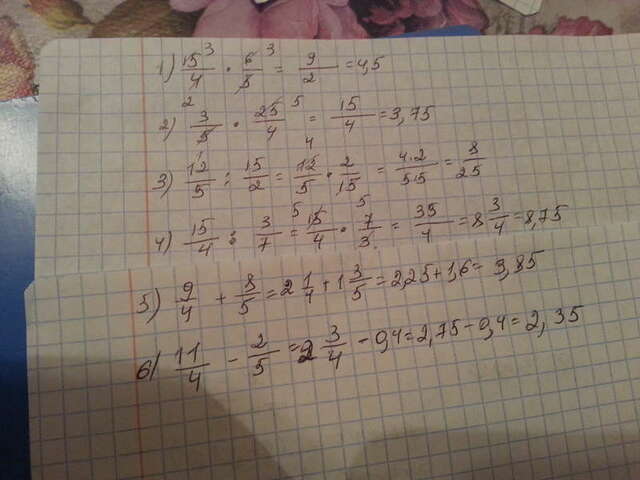 1) 15/4 · 6/5 = 9/2 = 4,5
2) 3/5 · 25/4 = 15/4 = 3,75
3) 12/5 : 15/2 = 12/5 · 2/15 = 4·2/5·5 = 8/25
4) 15/4 : 3/7 = 15/4 · 7/3 = 35/4 = 8 3/4 = 8,75
5) 9/4 + 8/5 = 2 1/4 + 1 3/5 = 2,25 + 1,6 = 3,85
6) 11/4 - 2/5 = 2 3/4 - 0,4 = 2,75 - 0,4 = 2,35